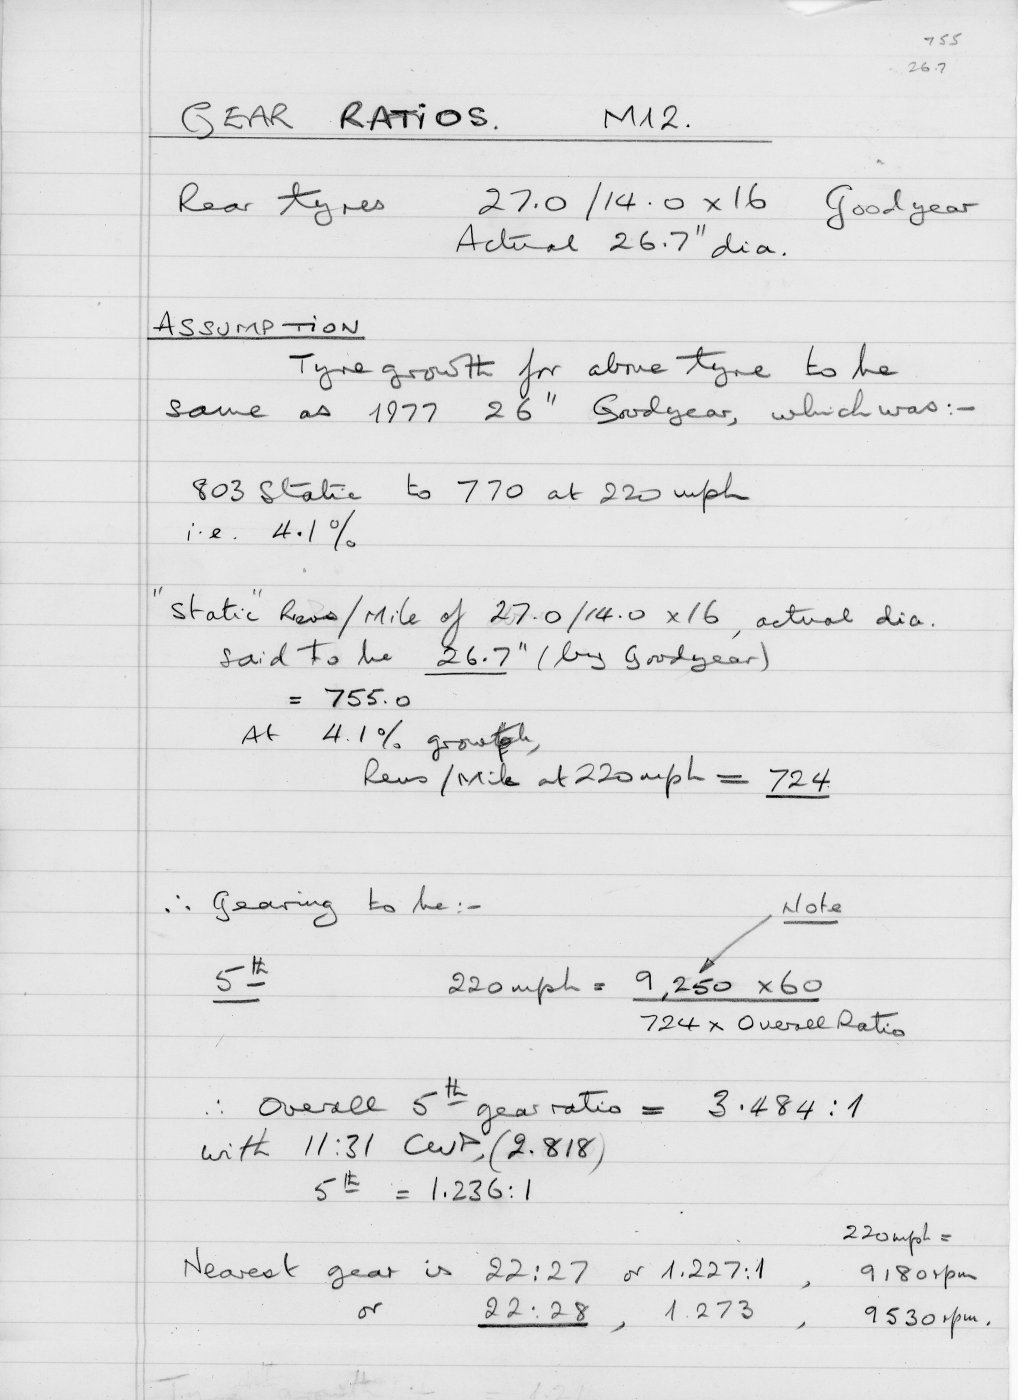 755
26.7
GEAR RATIOS. M12.
Rear tyres 27.0/14.0 x 16 Goodyear
Actual 26.7" dia.
ASSUMPTION
Tyre growth for above tyre to be
same as 1977 26" Goodyear, which was:-
803 Static to 770 at 220 mph
i.e. 4.1%
"Static" Revs/Mile of 27.0/14.0 x 16, actual dia.
said to be 26.7" (by Goodyear)
= 755.0
At 4.1% growth,
Revs/Mile at 220 mph = 724
∴ Gearing to be:-
Note
5th 220 mph = 9,250 x 60
724 x Overall Ratio
∴ Overall 5th gear ratio = 3.484:1
with 11:31 CWP, (2.818)
5th = 1.236:1
220 mph =
Nearest gear is 22:27 or 1.227:1, 9180 rpm
or 22:28, 1.273, 9530 rpm.